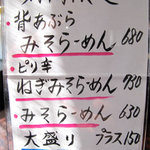 背あぶら
みそらーめん 680
・ピリ辛
ねぎみそらーめん 930
・みそらーめん 630
大盛り プラス150